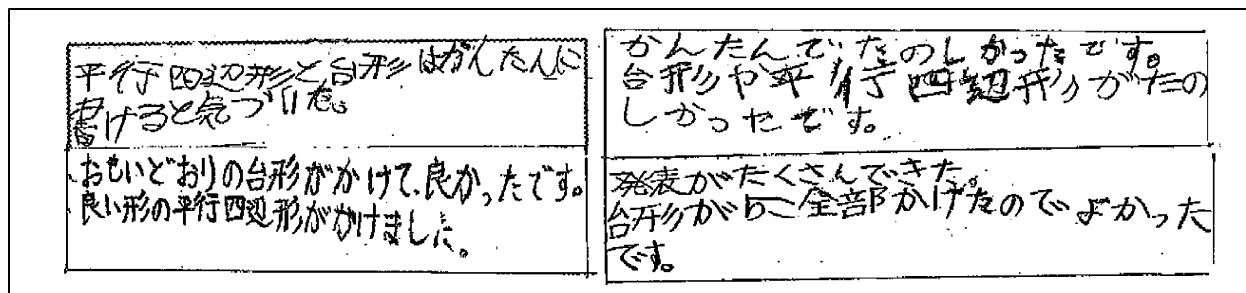 平行四辺形と台形はかんたんに
書けると気づいた。
おもいどおりの台形がかけて、良かったです。
良い形の平行四辺形がかけました。
かんたんでたのしかったです。
台形や平行四辺形がたの
しかったです。
発表がたくさんできた。
台形が5こ全部かけたのでよかった
です。